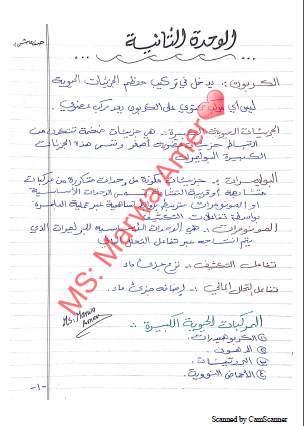 الوحدة الثانية
الكربون :. يدخل في تركيب معظم الجزيئات الحيوية
ليس أي مركب يحتوي على الكربون يعد مركب عضوي.
الجزيئات الحيوية الكبيرة :. هي جزيئات ضخمة تتكون من
ارتباط جزيئات عضوية أصغر وتسمى هذه الجزيئات
الكبيرة البوليمرات
البوليمرات :. جزيئات مكونة من وحدات متكررة من مركبات
متشابهة أو قريبة التشابه تسمى الوحدات الأساسية
او المونومرات ترتبط بروابط تساهمية عبر عملية البلمرة
بواسطة تفاعلات التكثيف
المونومرات :. هي الوحدات الأساسية للبوليمرات الذي
يتم انتاجه عبر تفاعل التحلل المائي
تفاعل التكثيف :. نزع جزيء ماء
تفاعل التحلل المائي :. إضافة جزيء ماء.
المركبات الحيوية الكبيرة :.
① الكربوهيدرات
② الدهون
③ البروتينات
④ الأحماض النووية.
Ms. Marwa
Amer
MS: Marwa Amer
-١-
Scanned by CamScanner